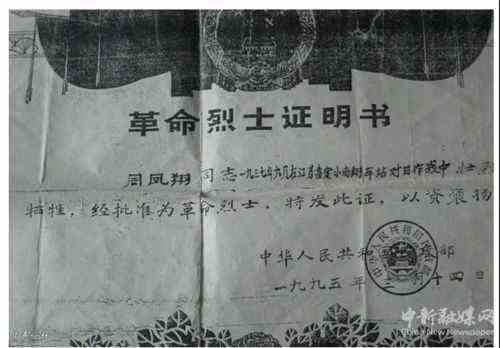 革命烈士证明书
周凤翔同志一九三七年六月在江苏嘉定小南翔车站对日作战中壮烈
牺牲，经批准为革命烈士。特发此证，以资褒扬
中华人民共和国 部
一九九五年 十四日
中新融媒网
China New Newspaper